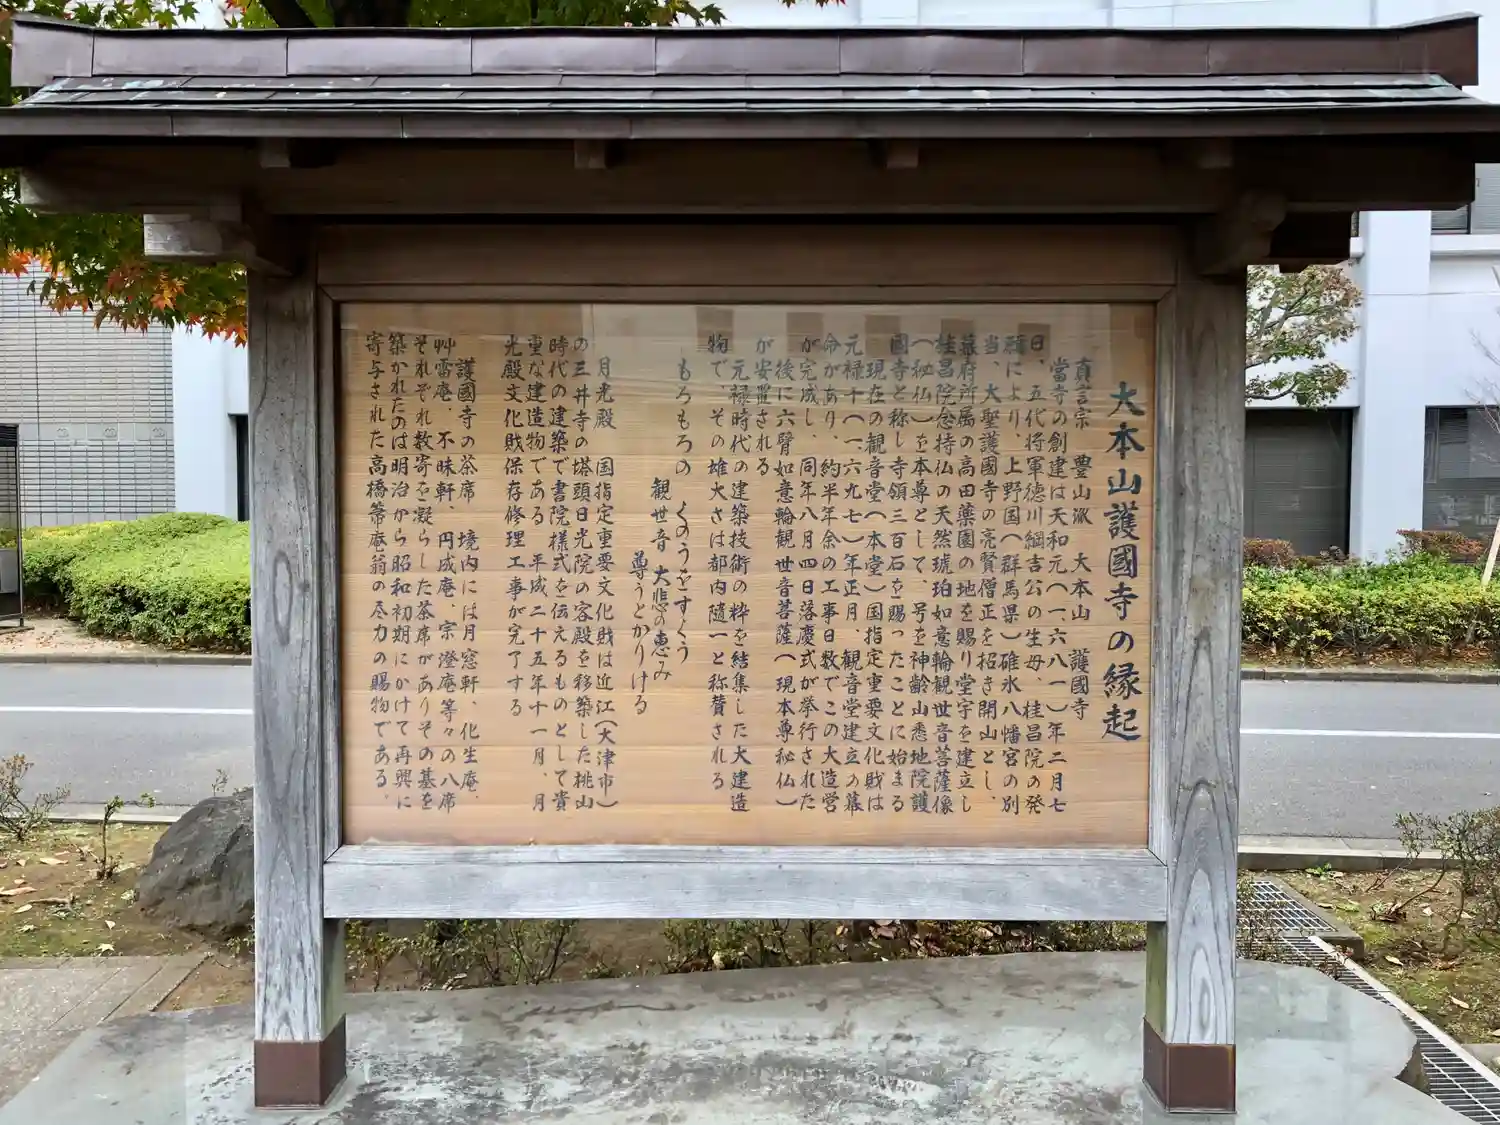 大本山護國寺の縁起
真言宗 豊山派 大本山 護國寺
當寺の創建は天和元(一、六八一)年二月七
日、五代将軍徳川綱吉公の生母、桂昌院の発
願により、上野国(群馬県)碓氷八幡宮の別
当、大聖護國寺の亮賢僧正を招き開山とし、
幕府所属の高田薬園の地を賜り堂宇を建立し
桂昌院念持仏の天然琥珀如意輪観世音菩薩像
(秘仏)を本尊として、号を神齢山悉地院護
國寺と称し寺領三百石を賜ったことに始まる
現在の観音堂(本堂)国指定重要文化財は
元禄十(一、六九七)年正月、観音堂建立の幕
命があり、約半年余の工事日数でこの大造営
が完成し、同年八月四日落慶式が挙行された
後に六臂如意輪観世音菩薩(現本尊秘仏)
が安置される
元禄時代の建築技術の粋を結集した大建造
物で、その雄大さは都内随一と称賛される
もろもろの くのうをすくう
観世音 大悲の恵み
尊うとかりける
月光殿 国指定重要文化財は近江(大津市)
の三井寺の塔頭日光院の客殿を移築した桃山
時代の建築で書院様式を伝えるものとして貴
重な建造物である 平成二十五年十一月、月
光殿文化財保存修理工事が完了する
護國寺の茶席 境内には月窓軒、化生庵、
艸雷庵、不昧軒、円成庵、宗澄庵等々の八席
それぞれ数寄を凝らした茶席がありその基を
築かれたのは明治から昭和初期にかけて再興に
寄与された高橋箒庵翁の尽力の賜物である、